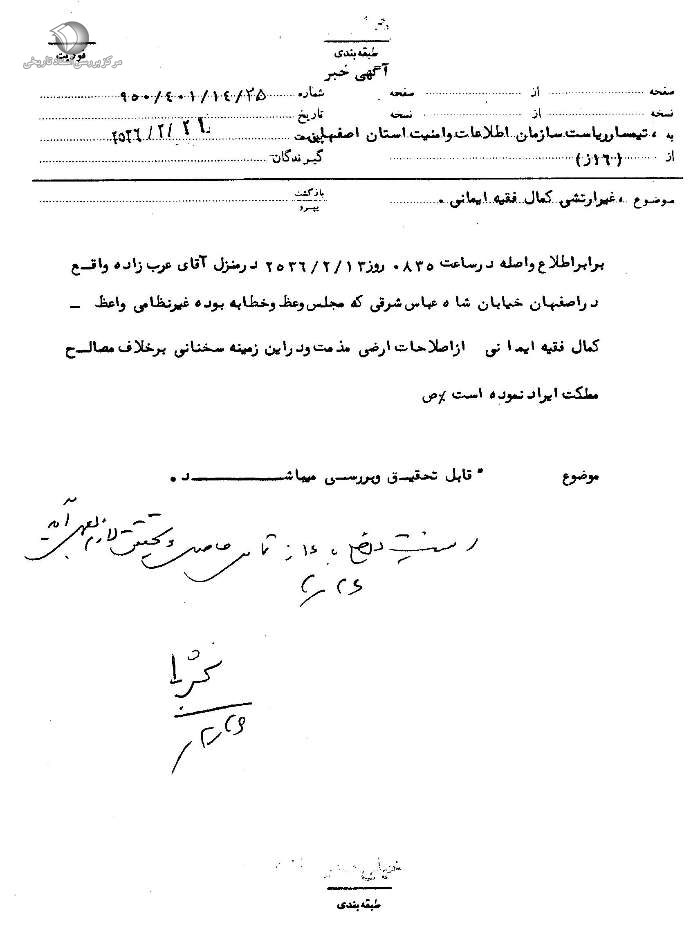 طبقه‌بندی
فوریت
مرکز بررسی اسناد تاریخی
آگهی خبر
صفحه از صفحه شماره ۹۵۰/۴۰۱/۱۴/۲۵
نسخه از نسخه تاریخ
به ، تیمسار ریاست سازمان اطلاعات وامنیت استان اصفهان پیوست ۲۵۳۶/۲/۲۹
از (۱۶ز) گیرندگان
موضوع ، غیرارتشی کمال فقیه ایمانی . بازگشت
پیرو
برابر اطلاع واصله درساعت ۰۸۳۵ روز ۲۵۳۶/۲/۱۳ درمنزل آقای عرب زاده واقع
دراصفهان خیابان شاه عباس شرقی که مجلس وعظ وخطابه بوده غیرنظامی واعظ ـ
کمال فقیه ایمانی ازاصلاحات ارضی مذمت ودراین زمینه سخنانی برخلاف مصالح
مملکت ایراد نموده است ٪ص
موضوع " قابل تحقیق وبررسی میباشد .
طبقه‌بندی